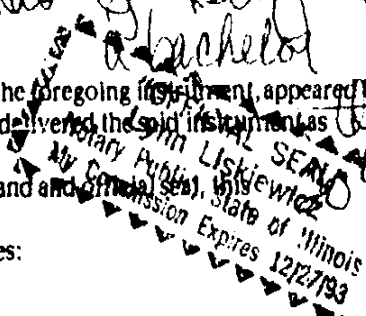 a bachelor
he foregoing instrument, appeared
delivered the said instrument as
and and official seal, this
es:
OFFICIAL SEAL
Lynn Liskiewicz
Notary Public, State of Illinois
My Commission Expires 12/27/93